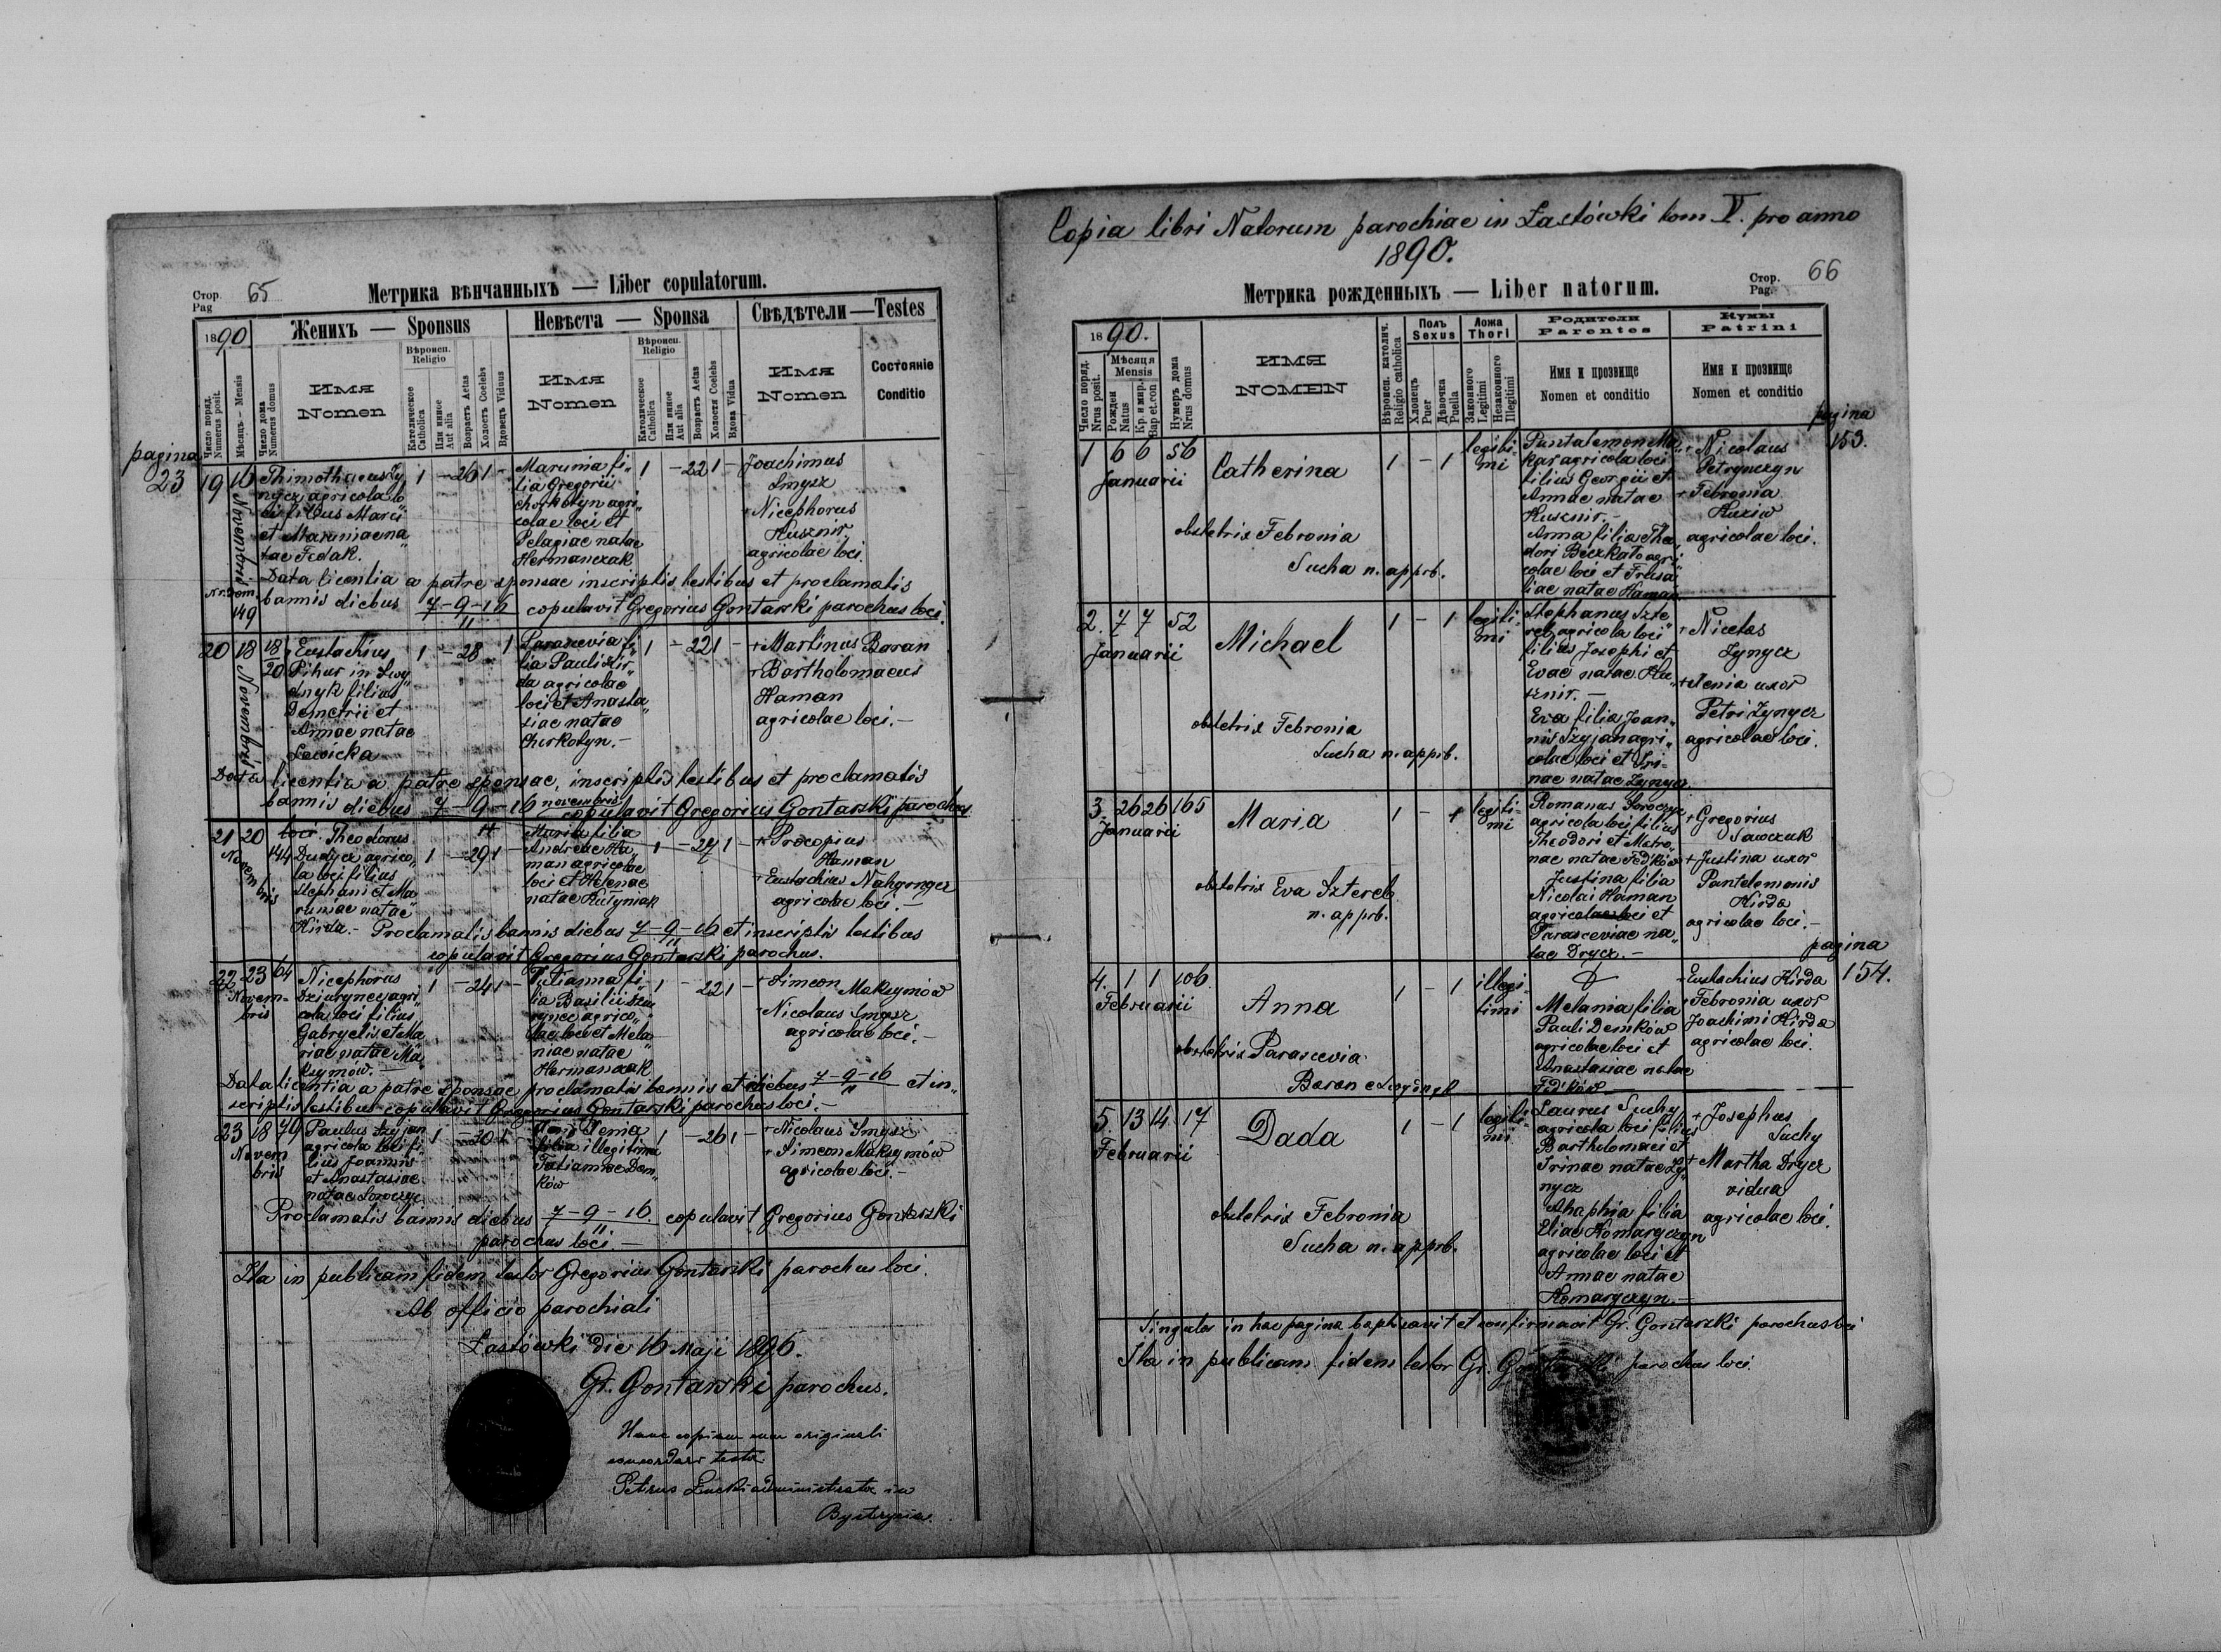 Стор. Pag 65
Метрика вѣнчанныхъ — Liber copulatorum.
1890
Женихъ — Sponsus
Невѣста — Sponsa
Свѣдѣтели — Testes
Число поряд. Numerus posit.
Мѣсяць — Mensis
Число дома Numerus domus
ИМЯ Nomen
Вѣроисп. Religio
Католическое Catholica
Или инное Aut alia
Возрастъ Aetas
Холостъ Coelebs
Вдовецъ Viduus
ИМЯ Nomen
Вѣроисп. Religio
Католическое Catholica
Или инное Aut alia
Возрастъ Aetas
Холостя Coelebs
Вдова Vidua
ИМЯ Nomen
Состояніе Conditio
pagina 23
19 16 Novembris Nr. Dom. 149
Thimotheus Zy-
nycz agricola lo-
ci filius Marci
et Maruniae na-
tae Fedak.
1 - 26 1 -
Marunia fi-
lia Gregorii
Chorkotyn agri-
colae loci et
Pelagiae natae
Hermanczak
1 - 22 1 -
Joachimus
Smysz
+ Nicephorus
Kusznir
agricolae loci.
Data licentia a patre sponsae inscriptis testibus et proclamatis
bannis diebus 7-9-16/11 copulavit Gregorius Gontarski parochus loci.
20 18 Novembris 18/20
Eustachius
Pihur in Lwy-
dnyk filius
Demetrii et
Annae natae
Lewicka
1 - 28 - 1
Parascevia fi-
lia Pauli Kir-
da agricolae
loci et Anasta-
siae natae
Chorkotyn. -
1 - 22 1 -
+ Martinus Baran
+ Bartholomaeus
Haman
agricolae loci. -
Data licentia a patre sponsae, inscriptis testibus et proclamatis
bannis diebus 7-9-16 novembris copulavit Gregorius Gontarski parochus
loci.
21 20 Novembris 144
Theodorus
Dudycz agrico-
la loci filius
Stephani et Ma-
runiae natae
Kirda. -
1 - 29 1
Maria filia
Andreae Ha-
man agricolae
loci et Helenae
natae Kutyniak
1 - 27 1 -
+ Procopius
Haman
+ Eustachius Nahgonycz
agricolae loci. -
Proclamatis bannis diebus 7-9-16/11 et inscriptis testibus
copulavit Gregorius Gontarski parochus.
22 23 Novembris 64
Nicephorus
Dziurynec agri-
cola loci filius
Gabryelis et Ma-
riae natae Ma-
ksymow. -
1 - 24 1 -
Tatianna fi-
lia Basilii Dziu-
rynec agrico-
lae loci et Mela-
niae natae
Hermanczak
1 - 22 1 -
+ Simeon Maksymów
+ Nicolaus Smysz
agricolae loci. -
Data licentia a patre sponsae, proclamatis bannis et diebus 7-9-16/11 et in-
scriptis testibus copulavit Gregorius Gontarski parochus loci. -
23 18 Novembris 79
Paulus Szyjan
agricola loci fi-
lius Joannis
et Anastasiae
natae Soroczyc
Xenia
filia illegitima
Tatiannae Dem-
ków
1 - 26 1 -
+ Nicolaus Smysz
+ Simeon Maksymów
agricolae loci. -
Proclamatis bannis diebus 7-9-16/11 copulavit Gregorius Gontarski
parochus loci. -
Ita in publicam fidem testor Gregorius Gontarski parochus loci.
Ab officio parochiali
Łastówki die 16 Maji 1896.
Gr. Gontarski parochus.
Hanc copiam cum originali
concordare testor
Petrus Łucki administrator in
Bystrycia.
Copia libri Natorum parochiae in Łastówki tom V. pro anno
1890.
Стор. Pag. 66
Метрика рожденныхъ — Liber natorum.
1890.
Число поряд. Nrus posit.
Мѣсяця Mensis
Рожден Natus
Кр. и мир. Bap et. con
Нумеръ дома Nrus domus
ИМЯ NOMEN
Вѣроисп. католич. Religio catholica
Полъ Sexus
Хлопецъ Puer
Дѣвочка Puella
Ложа Thori
Законного Legitimi
Незаконного Illegitimi
Родители Parentes
Имя и прозвище Nomen et conditio
Кумы Patrini
Имя и прозвище Nomen et conditio
pagina 153.
1 6 6 56
Januarii
Catherina
1 - 1 legiti-
mi
Pantalemon Ma-
kar agricola loci
filius Georgii et
Annae natae
Kusznir. -
Anna filia Theo-
dori Beczkato agri-
colae loci et Frusa-
liae natae Haman
+ Nicolaus
Petrynczyn
+ Febronia
Kuziw
agricolae loci.
obstetrix Febronia
Sucha n. apprb.
2. 7 7 52
Januarii
Michael
1 - 1 legiti-
mi
Stephanus Szte-
reb agricola loci
filius Josephi et
Evae natae Ku-
sznir. -
Eva filia Joan-
nis Szyjan agri-
colae loci et Iri-
nae natae Zynycz
+ Nicetas
Zynycz
+ Xenia uxor
Petri Zynycz
agricolae loci.
obstetrix Febronia
Sucha n. apprb.
3. 26 26 165
Januarii
Maria
1 - 1 legiti-
mi
Romanus Soroczyc
agricola loci filius
Theodori et Matro-
nae natae Fedków
Justina filia
Nicolai Haman
agricolae loci et
Parasceviae na-
tae Drycz. -
+ Gregorius
Sawczuk
+ Justina uxor
Pantelemonis
Kirda
agricolae loci. -
obstetrix Eva Sztereb
n. apprb.
pagina 154.
4. 1 1 106
Februarii
Anna
1 - 1 illegi-
timi
Melania filia
Pauli Demków
agricolae loci et
Anastasiae natae
Fedków
+ Eustachius Kirda
+ Febronia uxor
Joachimi Kirda
agricolae loci.
obstetrix Parascevia
Baran e Lwydnyk
5. 13 14 17
Februarii
Dada
1 - 1 legiti-
mi
Laurus Suchy
agricola loci filius
Bartholomaei et
Irinae natae Zy-
nycz
Ahaphia filia
Eliae Komaryczyn
agricolae loci et
Annae natae
Komaryczyn. -
+ Josephus
Suchy
+ Martha Drycz
vidua
agricolae loci.
obstetrix Febronia
Sucha n. apprb.
Singulos in hac pagina baptisavit et confirmavit Gr. Gontarski parochus loci
Ita in publicam fidem testor Gr. Gontarski parochus loci.